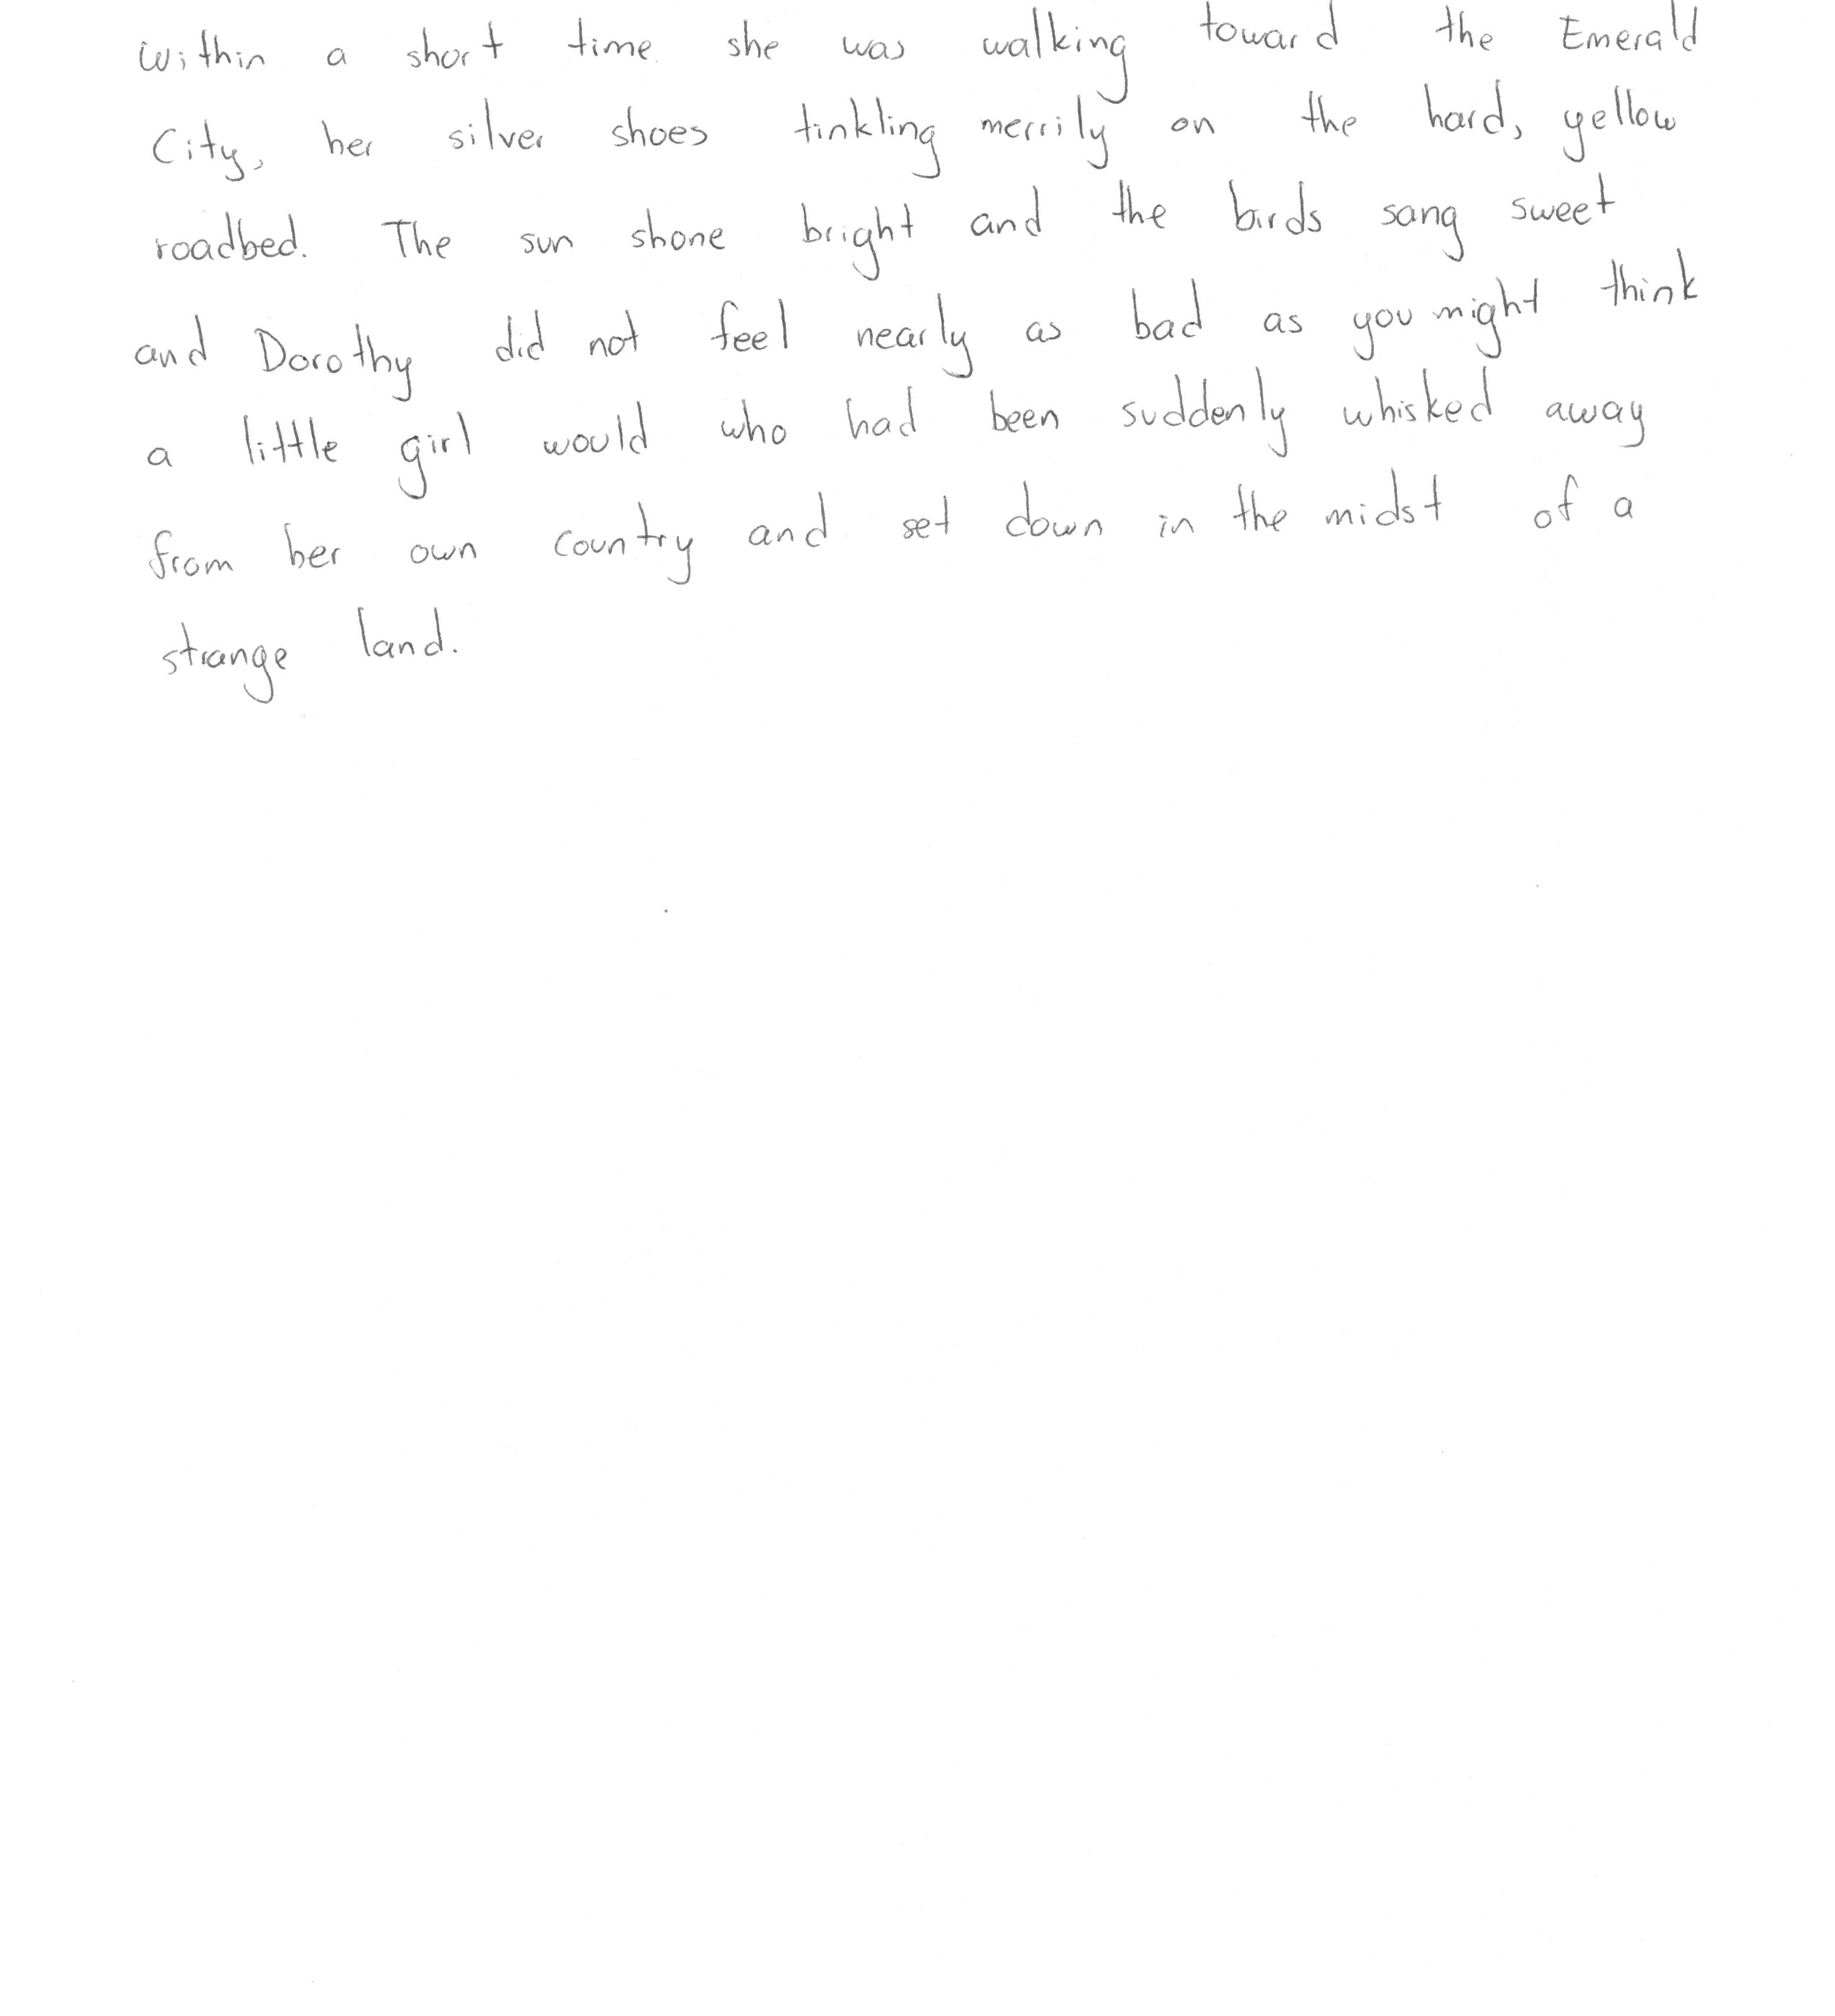 Within a short time she was walking toward the Emerald
City, her silver shoes tinkling merrily on the hard, yellow
roadbed. The sun shone bright and the birds sang sweet
and Dorothy did not feel nearly as bad as you might think
a little girl would who had been suddenly whisked away
from her own country and set down in the midst of a
strange land.